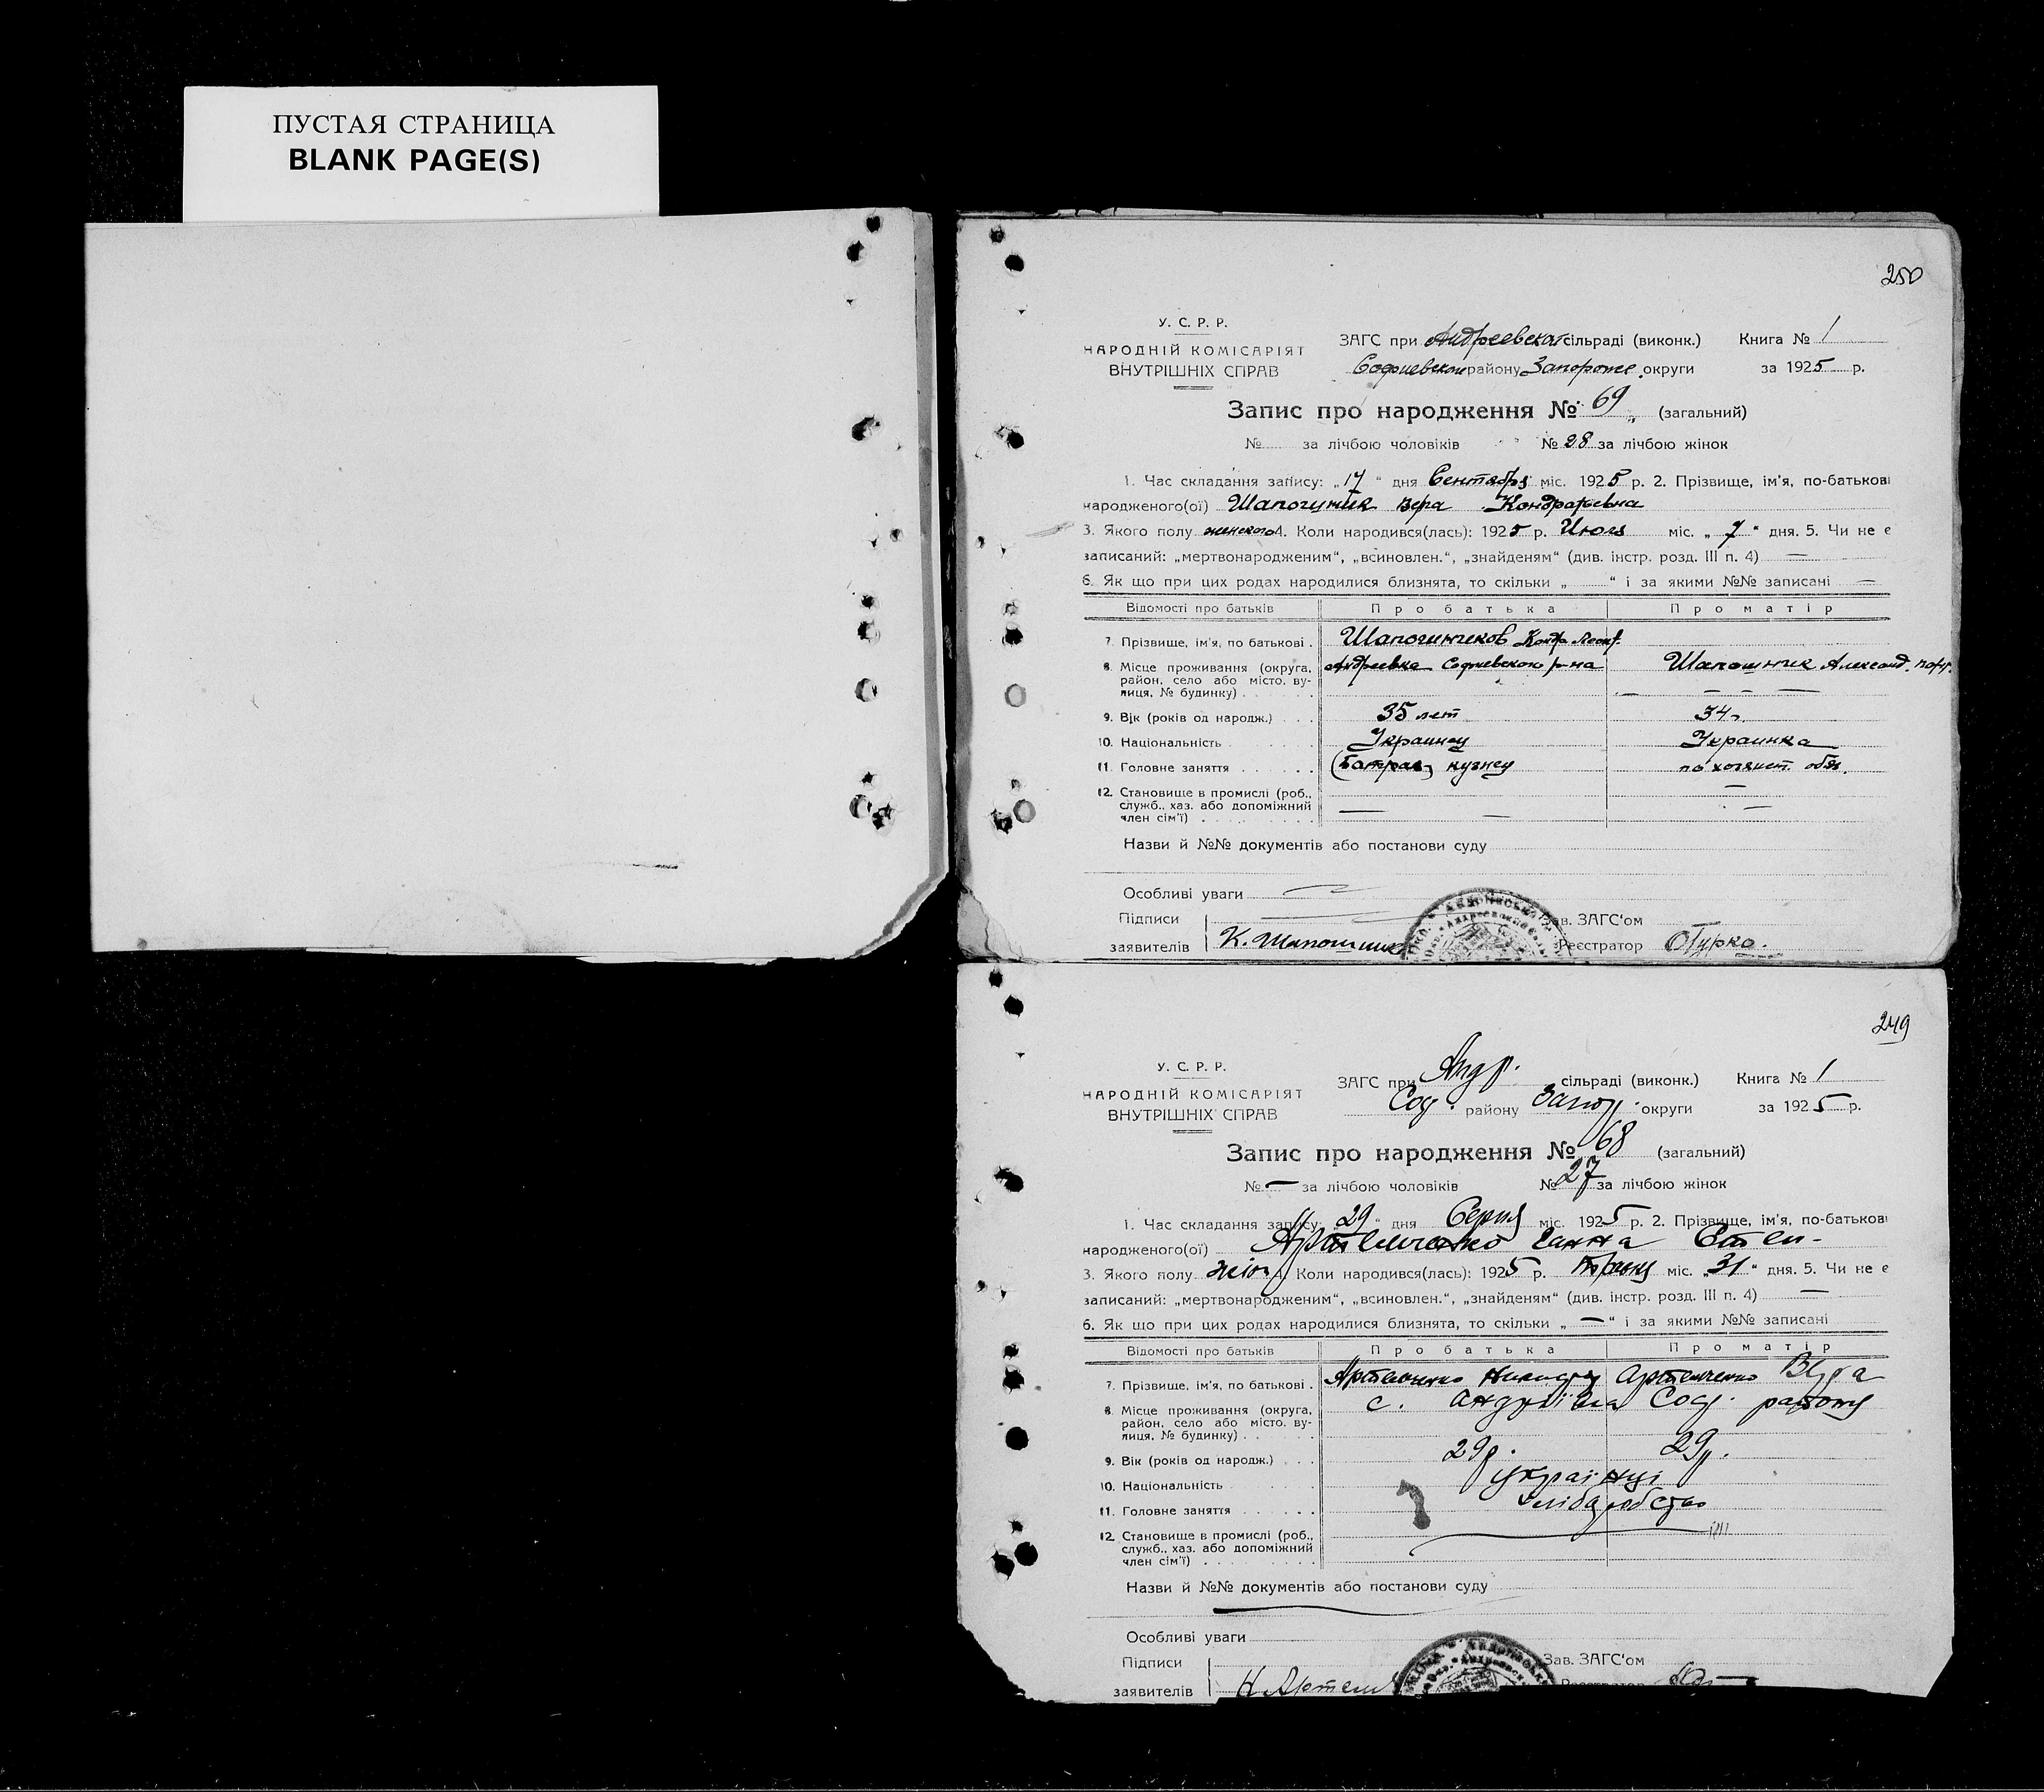 ПУСТАЯ СТРАНИЦА
BLANK PAGE(S)
250
У. С. Р. Р.
НАРОДНІЙ КОМІСАРІЯТ
ВНУТРІШНІХ СПРАВ
ЗАГС при Андреевской сільраді (виконк.) Книга № 1
Софиевском району Запорож. округи за 1925 р.
Запис про народження № 69 (загальний)
№ за лічбою чоловіків № 28 за лічбою жінок
1. Час складання запису: „17“ дня Сентября міс. 1925 р. 2. Прізвище, ім'я, по-батькові
народженого(ої) Вера Кондратьевна
3. Якого полу женского 4. Коли народився(лась): 1925 р. Июля міс. „7“ дня. 5. Чи не є
записаний: „мертвонародженим“, „всиновлен.“, „знайденям“ (див. інстр. розд. III п. 4) —
6. Як що при цих родах народилися близнята, то скільки „ “ і за якими №№ записані —
Відомості про батьків Про батька Про матір
7. Прізвище, ім'я, по батькові .
8. Місце проживання (округа, Андреевка Софиевского р-на Александ.
район, село або місто, ву-
лиця, № будинку) . . — — — —
9. Вік (років од народж.) . . . 35 лет 34
10. Національність . . . . . . Украинец Украинка
11. Головне заняття . . . . . . (батрак) кузнец по хозяйст. обяз.
12. Становище в промислі (роб., —
служб., хаз. або допоміжний — —
член сім'ї) . . . . . . . . . —
Назви й №№ документів або постанови суду
Особливі уваги
Підписи Зав. ЗАГС'ом
заявителів К. Реєстратор
249
У. С. Р. Р.
НАРОДНІЙ КОМІСАРІЯТ
ВНУТРІШНІХ СПРАВ
ЗАГС при Андр. сільраді (виконк.) Книга № 1
Соф. району Запор. округи за 1925 р.
Запис про народження № 68 (загальний)
№ — за лічбою чоловіків № 27 за лічбою жінок
1. Час складання запису: „29“ дня Серпня міс. 1925 р. 2. Прізвище, ім'я, по-батькові
народженого(ої) Артемченко Ганна
3. Якого полу жіноч 4. Коли народився(лась): 1925 р. міс. „31“ дня. 5. Чи не є
записаний: „мертвонародженим“, „всиновлен.“, „знайденям“ (див. інстр. розд. III п. 4) —
6. Як що при цих родах народилися близнята, то скільки „—“ і за якими №№ записані
Відомості про батьків Про батька Про матір
7. Прізвище, ім'я, по батькові . Артемченко Артемченко Віра
8. Місце проживання (округа, с. Андріївка Соф. району
район, село або місто, ву-
лиця, № будинку) . .
9. Вік (років од народж.) . . . 29р. 29р.
10. Національність . . . . . . українці
11. Головне заняття . . . . . . хліборобство
12. Становище в промислі (роб.,
служб., хаз. або допоміжний
член сім'ї) . . . . . . . . .
Назви й №№ документів або постанови суду
Особливі уваги
Підписи Зав. ЗАГС'ом
заявителів Н Артем Реєстратор